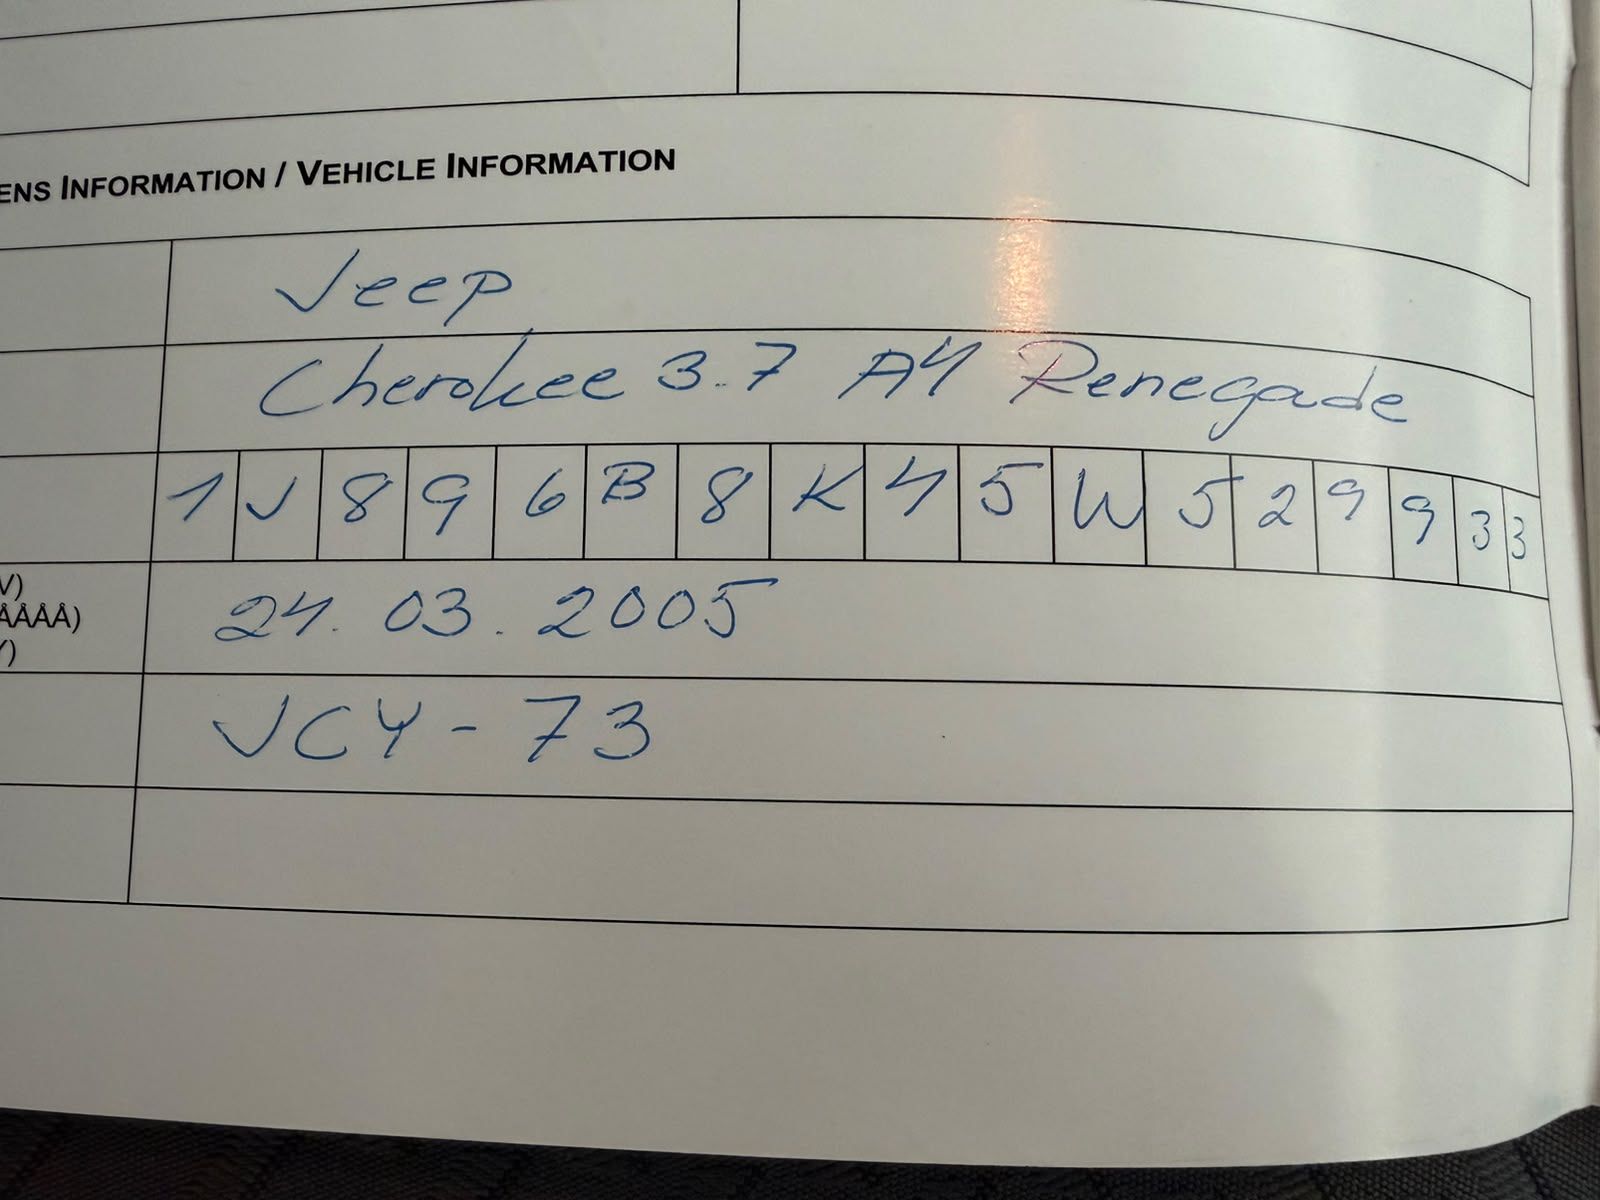 ENS INFORMATION / VEHICLE INFORMATION
Jeep
Cherokee 3.7 A4 Renegade
1 J 8 9 6 B 8 K 4 5 W 5 2 9 9 3 3
V)
ÅÅÅÅ) 24.03.2005
Y)
JCY-73